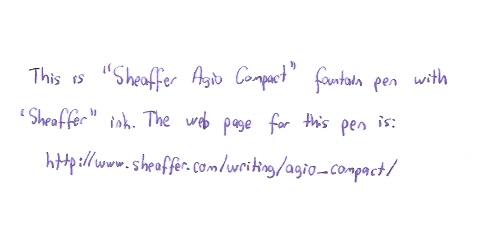 This is "Sheaffer Agio Compact" fountain pen with
"Sheaffer" ink. The web page for this pen is:
http://www.sheaffer.com/writing/agio_compact/